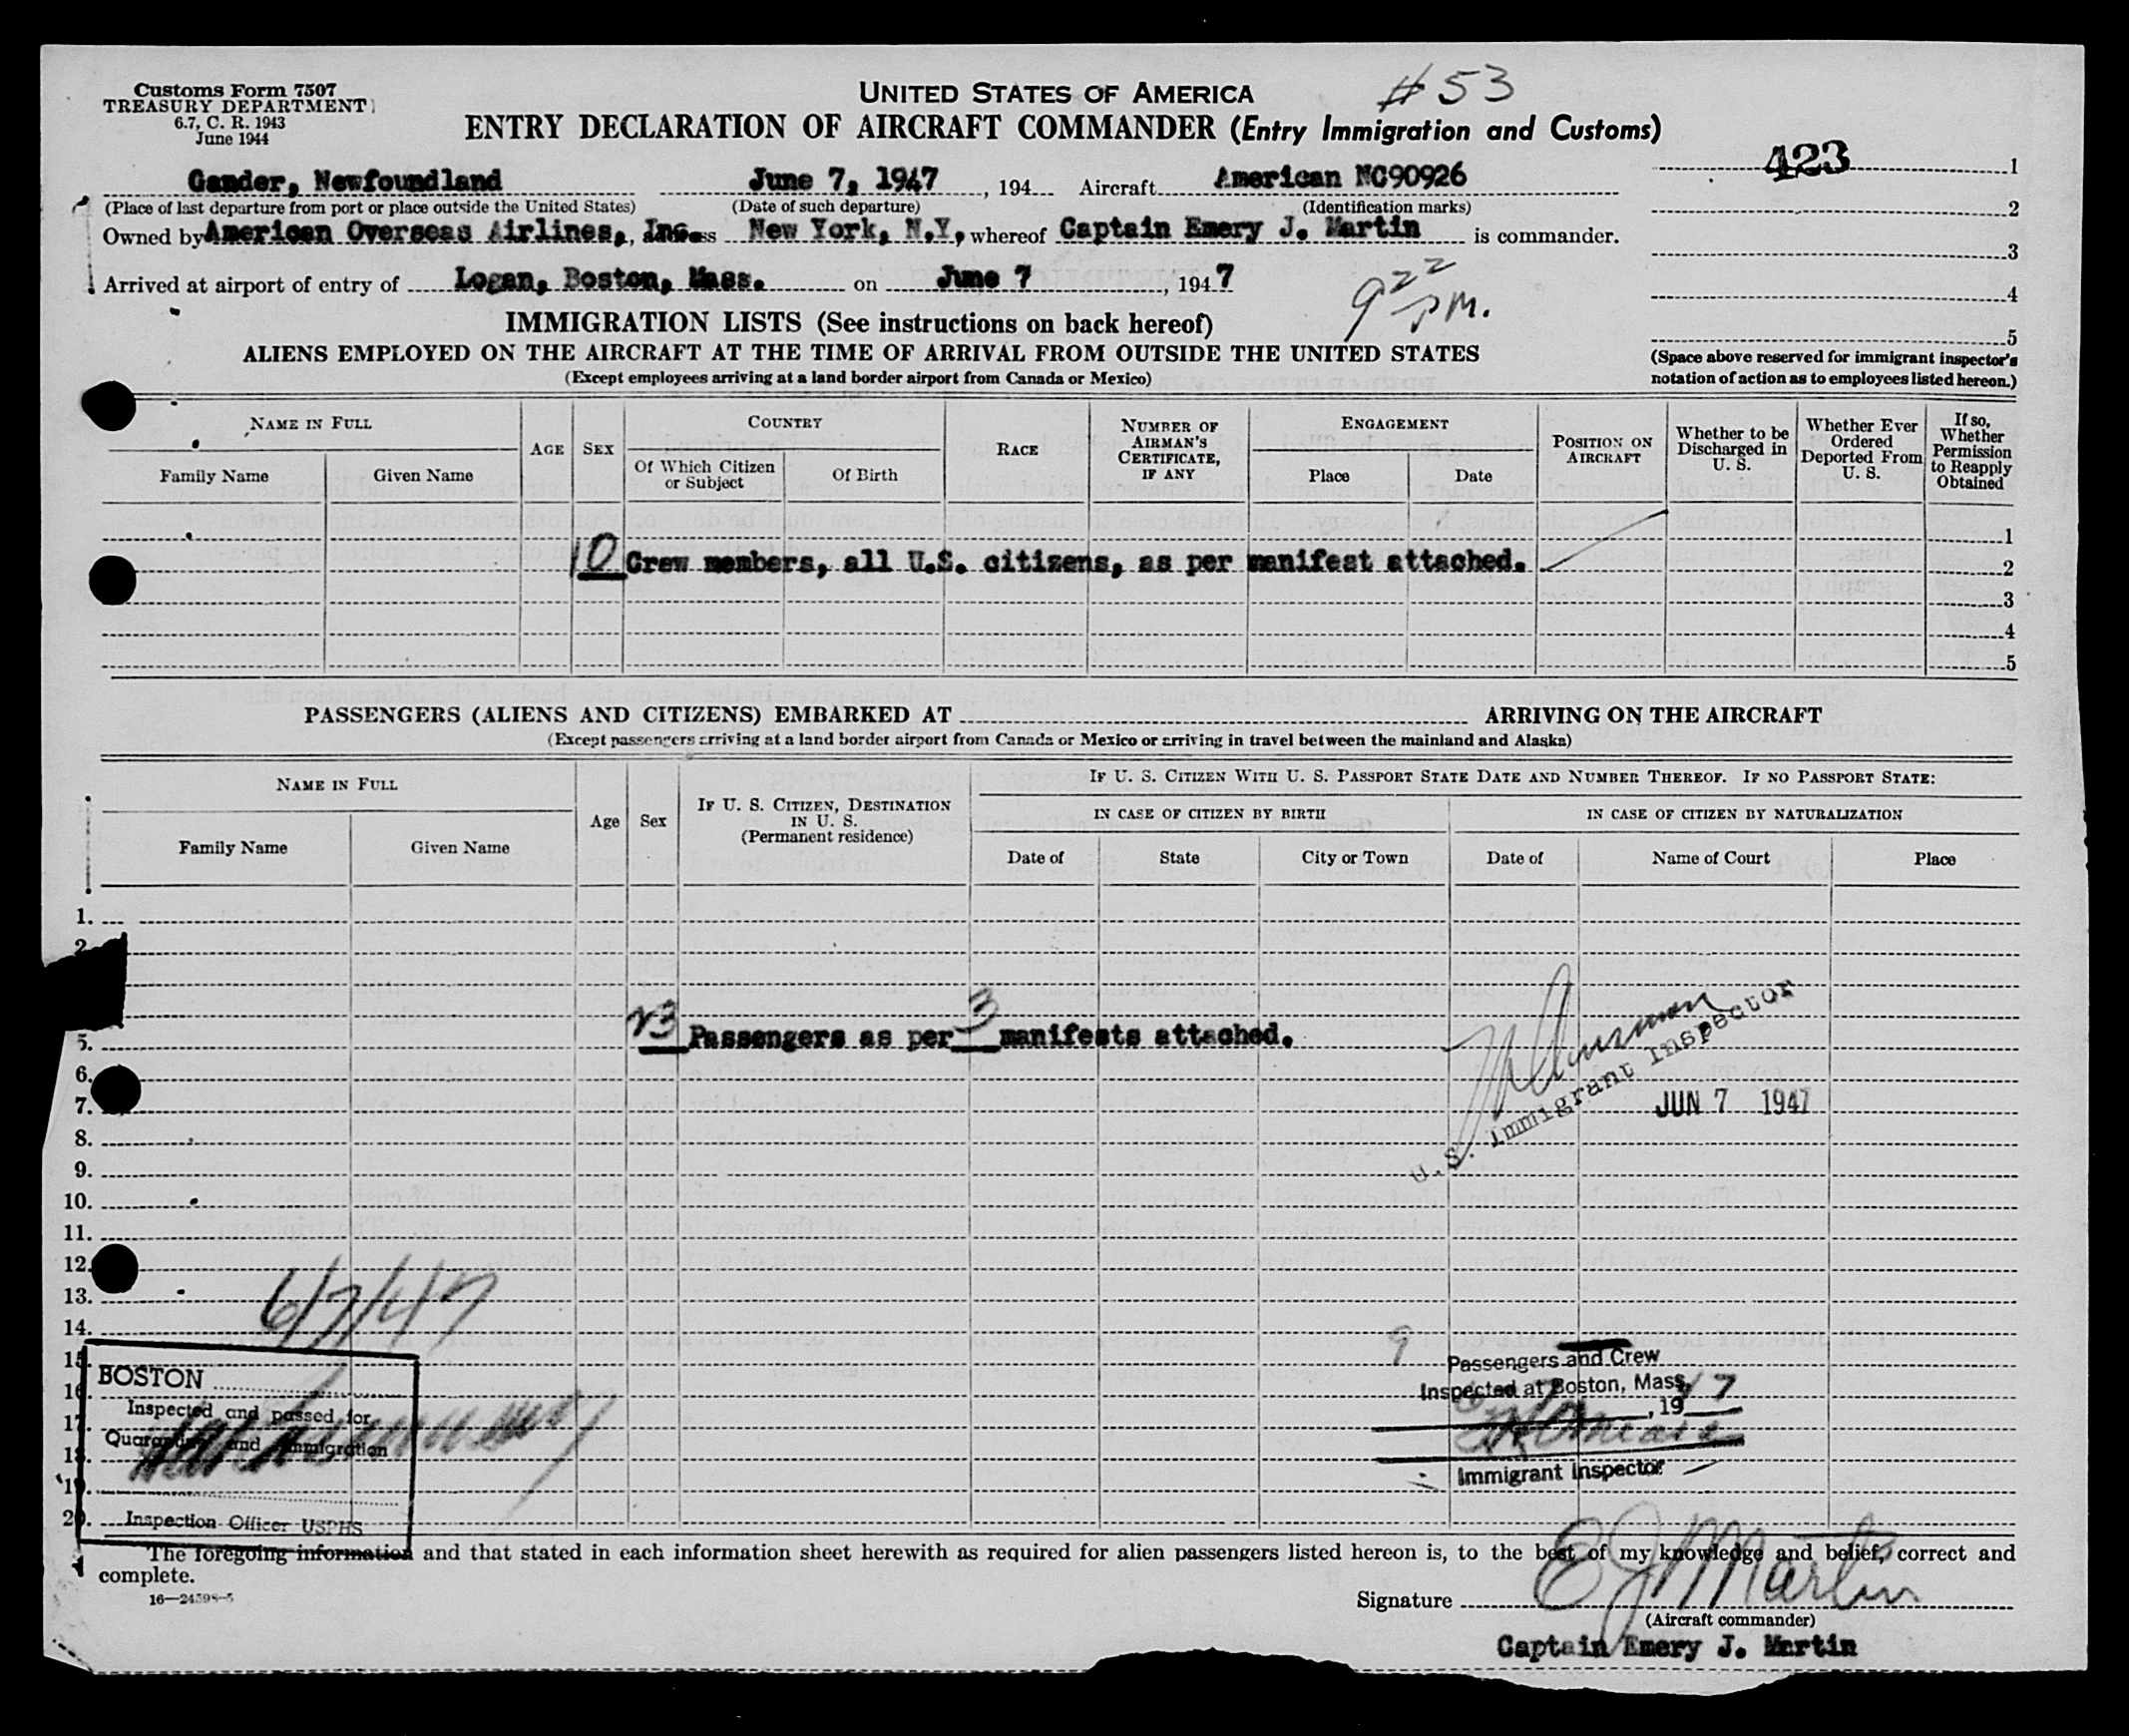 Customs Form 7507
TREASURY DEPARTMENT
6.7, C. R. 1943
June 1944
UNITED STATES OF AMERICA
#53
ENTRY DECLARATION OF AIRCRAFT COMMANDER (Entry Immigration and Customs)
423
Gander, Newfoundland June 7, 1947, 194 Aircraft American NC90926
(Place of last departure from port or place outside the United States) (Date of such departure) (Identification marks)
Owned by American Overseas Airlines, Inc. New York, N.Y, whereof Captain Emery J. Martin is commander.
Arrived at airport of entry of Logan, Boston, Mass. on June 7, 1947
9 22 PM.
1
2
3
4
5
(Space above reserved for immigrant inspector's
notation of action as to employees listed hereon.)
IMMIGRATION LISTS (See instructions on back hereof)
ALIENS EMPLOYED ON THE AIRCRAFT AT THE TIME OF ARRIVAL FROM OUTSIDE THE UNITED STATES
(Except employees arriving at a land border airport from Canada or Mexico)
NAME IN FULL
Family Name
Given Name
AGE
SEX
COUNTRY
Of Which Citizen or Subject
Of Birth
RACE
NUMBER OF AIRMAN'S CERTIFICATE, IF ANY
ENGAGEMENT
Place
Date
POSITION ON AIRCRAFT
Whether to be Discharged in U. S.
Whether Ever Ordered Deported From U. S.
If so, Whether Permission to Reapply Obtained
1
10 Crew members, all U.S. citizens, as per manifest attached. 2
3
4
5
PASSENGERS (ALIENS AND CITIZENS) EMBARKED AT ARRIVING ON THE AIRCRAFT
(Except passengers arriving at a land border airport from Canada or Mexico or arriving in travel between the mainland and Alaska)
NAME IN FULL
Family Name
Given Name
Age
Sex
IF U. S. CITIZEN, DESTINATION IN U. S.
(Permanent residence)
IF U. S. CITIZEN WITH U. S. PASSPORT STATE DATE AND NUMBER THEREOF. IF NO PASSPORT STATE:
IN CASE OF CITIZEN BY BIRTH
Date of
State
City or Town
IN CASE OF CITIZEN BY NATURALIZATION
Date of
Name of Court
Place
1.
2
23 Passengers as per 3 manifests attached.
5.
6.
7.
U.S. Immigrant Inspector
JUN 7 1947
8.
9.
10.
11.
12.
13.
6/7/47
14.
15.
16
17.
18.
19.
20.
BOSTON
Inspected and passed for
Quarantine and Immigration
Inspection Officer USPHS
9
Passengers and Crew
Inspected at Boston, Mass.
, 1947
Immigrant Inspector
The foregoing information and that stated in each information sheet herewith as required for alien passengers listed hereon is, to the best of my knowledge and belief, correct and
complete.
16—24598-5
Signature E J Martin
(Aircraft commander)
Captain Emery J. Martin